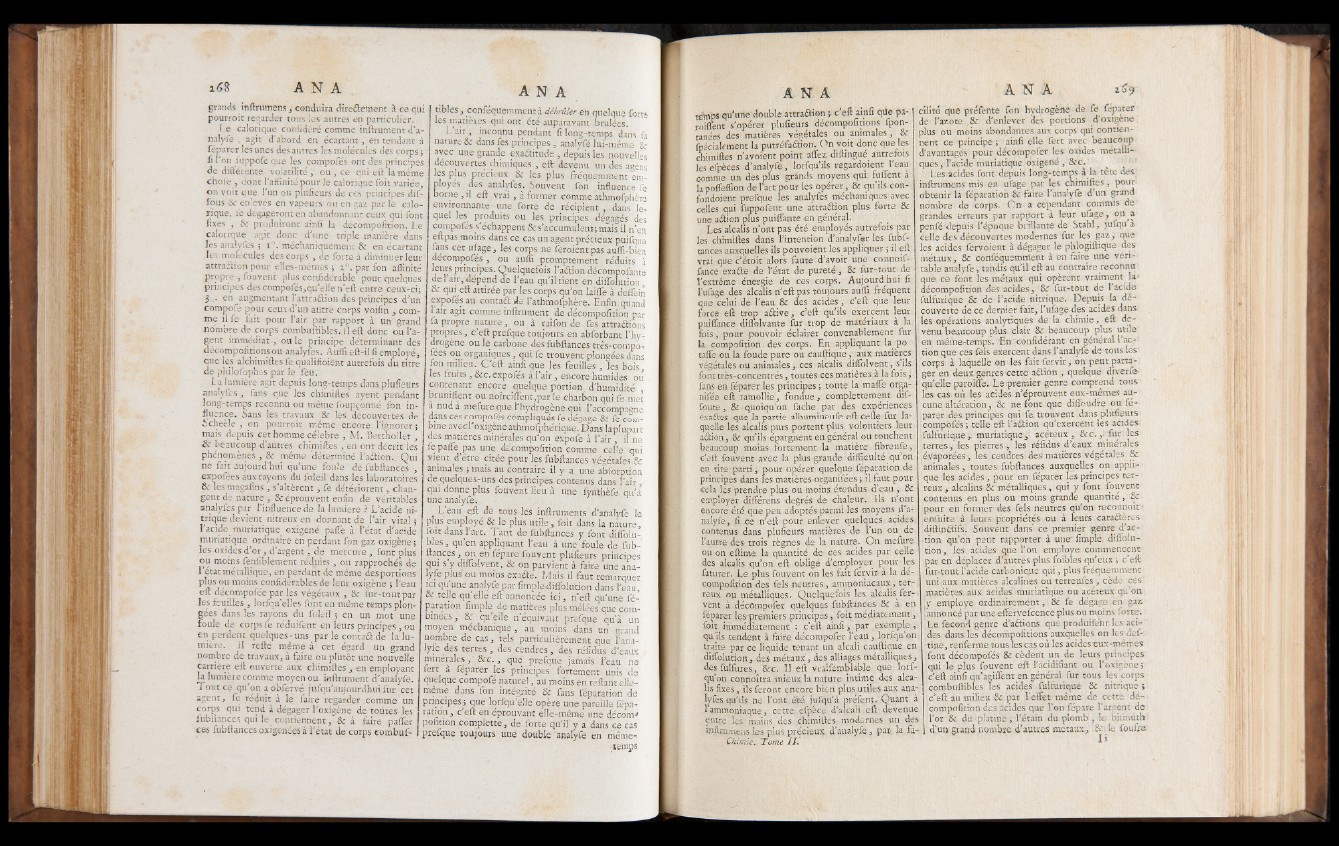 268 ANA
grands inſtrumens, conduira directement à ce qui
pourroit regarder tous les autres en particulier.
Le calorique conſidéré comme inſtrument d'a-
nalyſe, agit d'abord en écartant, en tendant à
ſéparer les unes des autres les molécules des corps;
ſi l'on ſuppoſe que les compoſés ont des principes
de différente volatilité, ou, ce qui eſt la même
choſe, dont l'affinité pour le calorique ſoit variée,
on voit que l'un ou pluſieurs de ces principes diſ-
ſous & enlevés en vapeurs ou en gaz par le calo-
rique, ſe dégageront en abandonnant ceux qui ſont
fixes, & produiront ainſi la décompoſition. Le
calorique agit donc d'une triple manière dans
les analyſes; 1°. méchaniquement & en écartant
les molécules des corps, de ſorte à diminuer leur
attraction pour elles-mêmes; 2°. par ſon affinité
propre, ſouvent plus conſidérable pour quelques
principes des compoſés, qu'elle n'eſt entre ceux-ci;
3°. en augmentant l'attraction des principes d'un
compoſé pour ceux d'un autre corps voiſin, com-
me il ſe fait pour l'air par rapport à un grand
nombre de corps combuſtibles. Il eſt donc ou l'a-
gent immédiat, ou le principe déterminant des
décompoſitions ou analyſes. Auſſi eſt-il ſi employé,
que les alchimiſtes ſe qualifioient autrefois du titre
de philoſophes par le feu.
La lumière agit depuis long-temps dans pluſieurs
analyſes, ſans que les chimiſtes ayent pendant
long-temps reconnu ou même ſoupçonné ſon in-
fluence. Sans les travaux & les découvertes de
Schéele, on pourroit même encore l'ignorer;
mais depuis cet homme célèbre, M. Berthollet,
& beaucoup d'autres chimiſtes, en ont décrit les
phénomènes, & même déterminé l'action. Qui
ne ſait aujourd'hui qu'une foule de ſubſtances,
expoſées aux rayons du ſoleil dans les laboratoires
& les magaſins, s'altèrent, ſe détériorent, chan-
gent de nature, & éprouvent enfin de véritables
analyſes par l'influence de la lumière? L'acide ni-
trique devient nitreux en donnant de l'air vital;
l'acide muriatique oxigéné paſſe à l'état d'acide
muriatique ordinaire en perdant ſon gaz oxigène;
les oxides d'or, d'argent, de mercure, ſont plus
ou moins ſenſiblement réduits, ou rapprochés de
l'état métallique, en perdant de même des portions
plus ou moins conſidérables de leur oxigène; l'eau
eſt décompoſée par les végétaux, & ſur-tout par
les feuilles, lorſqu'elles ſont en même temps plon-
gées dans les rayons du ſoleil; en un mot une
foule de corps ſe réduiſent en leurs principes, ou
en perdent quelques-uns par le contact de la lu-
mière. Il reſte même à cet égard un grand
nombre de travaux à faire ou plutôt une nouvelle
carrière eſt ouverte aux chimiſtes, en employant
la lumière comme moyen ou inſtrument d'analyſe.
Tout ce qu'on a obſervé juſqu'aujourd'hui ſur cet
agent, ſe réduit à le faire regarder comme un
corps qui tend à dégager l'oxigène de toutes les
ſubſtances qui le contiennent, & à faire paſſer
ces ſubſtances oxigénées à l'état de corps combuſ-
ANA
tibles, conſéquemment à débrûler en quelque ſorte
les matières qui ont été auparavant brûlées.
L'air, inconnu pendant ſi long-temps dans ſa
nature & dans ſes principes, analyſé lui-même &
avec une grande exactitude, depuis les nouvelles
découvertes chimiques, eſt devenu un des agens
les plus précieux & les plus fréquemment em-
ployés des analyſes. Souvent ſon influence ſe
borne, il eſt vrai, à former comme athmoſphère
environnante une ſorte de récipient, dans le-
quel les produits ou les principes dégagés des
compoſés s'échappent & s'accumulent; mais il n'en
eſt pas moins dans ce cas un agent précieux puiſque
ſans cet uſage, les corps ne ſeroient pas auſſi-bien
décompoſés, ou auſſi promptement réduits à
leurs principes. Quelquefois l'action décompoſante
de l'air, dépend de l'eau qu'il tient en diſſolution,
& qui eſt attirée par les corps qu'on laiſſe à deſſein
expoſés au contact de l'athmoſphère. Enfin quand
l'air agit comme inſtrument de décompoſition par
ſa propre nature, ou à raiſon de ſes attractions
propres, c'eſt preſque toujours en abſorbant l'hy-
drogène ou le carbone des ſubſtances très-compo-
ſées ou organiques, qui ſe trouvent plongées dans
ſon milieu. C'eſt ainſi que les feuilles, les bois,
les fruits, &c. expoſés à l'air, encore humides ou
contenant encore quelque portion d'humidité,
bruniſſent ou noirciſſent, par le charbon qui ſe met
à nud à meſure que l'hydrogène qui l'accompagne
dans ces compoſés compliqués ſe dégage & ſe com-
bine avec l'oxigène athmoſphérique. Dans la plupart
des matières minérales qu'on expoſe à l'air, il ne
ſe paſſe pas une décompoſition comme celle qui
vient d'être citée pour les ſubſtances végétales &
animales; mais au contraire il y a une abſorption
de quelques-uns des principes contenus dans l'air,
qui donne plus ſouvent lieu à une ſynthèſe qu'à
une analyſe.
L'eau eſt de tous les inſtruments d'analyſe le
plus employé & le plus utile, ſoit dans la nature,
ſoit dans l'art. Tant de ſubſtances y ſont diſſolu-
bles, qu'en appliquant l'eau à une foule de ſub-
ſtances, on en ſépare ſouvent pluſieurs principes
qui s'y diſſolvent, & on parvient à faire une ana-
lyſe plus ou moins exacte. Mais il faut remarquer
ici qu'une analyſe par ſimple diſſolution dans l'eau,
& telle qu'elle eſt annoncée ici, n'eſt qu'une ſé-
paration ſimple de matières plus mêlées que com-
binées, & qu'elle n'équivaut preſque qu'à un
moyen méchanique, au moins dans un grand
nombre de cas, tels particulièrement que l'ana-
lyſe des terres, des cendres, des réſidus d'eaux
minérales, &c., que preſque jamais l'eau ne
ſert à ſéparer les principes fortement unis de
quelque compoſé naturel, au moins en reſtant elle-
même dans ſon intégrité & ſans ſéparation de
principes; que lorſqu'elle opère une pareille ſépa-
ration, c'eſt en éprouvant elle-même une décom-
poſition complette, de ſorte qu'il y a dans ce cas
preſque toujours une double analyſe en même-
temps
ANA
temps qu'une double attraction; c'eſt ainſi que pa-
roiſſent s'opérer pluſieurs décompoſitions ſpon-
tanées des matières végétales ou animales, &
ſpécialement la putréfaction. On voit donc que les
chimiſtes n'avoient point aſſez diſtingué autrefois
les eſpèces d'analyſe, lorſqu'ils regardoient l'eau
comme un des plus grands moyens qui fuſſent à
la poſſeſſion de l'art pour les opérer, & qu'ils con-
fondoient preſque les analyſes méchaniques avec
celles qui ſuppoſent une attraction plus forte &
une action plus puiſſante en général.
Les alcalis n'ont pas été employés autrefois par
les chimiſtes dans l'intention d'analyſer les ſubſ-
tances auxquelles ils pouvoient les appliquer; il eſt
vrai que c'étoit alors faute d'avoir une connoiſ-
ſance exacte de l'état de pureté, & ſur-tout de
l'extrême énergie de ces corps. Aujourd'hui ſi
l'uſage des alcalis n'eſt pas toujours auſſi fréquent
que celui de l'eau & des acides, c'eſt que leur
force eſt trop active, c'eſt qu'ils exercent leur
puiſſance diſſolvante ſur trop de matériaux à la
fois, pour pouvoir éclairer convenablement ſur
la compoſition des corps. En appliquant la po-
taſſe ou la ſoude pure ou cauſtique, aux matières
végétales ou animales, ces alcalis diſſolvent, s'ils
ſont très-concentrés, toutes ces matières à la fois,
ſans en ſéparer les principes; toute la maſſe orga-
niſée eſt ramollie, fondue, complettement diſ-
ſoute, & quoiqu'on ſache par des expériences
exactes que la partie albuminenſe eſt celle ſur la-
quelle les alcalis purs portent plus volontiers leur
action, & qu'ils épargnent en général ou touchent
beaucoup moins fortement la matière fibreuſe,
c'eſt ſouvent avec la plus grande difficulté qu'on
en tire parti, pour opérer quelque ſéparation de
principes dans les matières organiſées; il faut pour
cela les prendre plus ou moins étendus d'eau, &
employer différens degrés de chaleur. Ils n'ont
encore été que peu adoptés parmi les moyens d'a-
nalyſe, ſi ce n'eſt pour enlever quelques acides
contenus dans pluſieurs matières de l'un ou de
l'autre des trois règnes de la nature. On meſure
ou on eſtime la quantité de ces acides par celle
des alcalis qu'on eſt obligé d'employer pour les
ſaturer. Le plus ſouvent on les fait ſervir à la dé-
compoſition des ſels neutres, ammoniacaux, ter-
reux ou métalliques. Quelquefois les alcalis ſer-
vent à décompoſer quelques ſubſtances & à en
ſéparer les premiers principes, ſoit médiatement,
ſoit immédiatement: c'eſt ainſi, par exemple,
qu'ils tendent à faire décompoſer l'eau, lorſqu'on
traite par ce liquide tenant un alcali cauſtique en
diſſolution, des métaux, des alliages métalliques,
des ſulfures, &c. Il eſt vraiſemblable que lorſ-
qu'on connoîtra mieux la nature intime des alca-
lis fixes, ils ſeront encore bien plus utiles aux ana-
lyſes qu'ils ne l'ont été juſqu'à préſent. Quant à
l'ammoniaque, cette eſpèce d'alcali eſt devenue
entre les mains des chimiſtes modernes un des
inſtrumens les plus précieux d'analyſe, par la fa-
Chimie. Tome II.
ANA 269
cilité que préſente ſon hydrogène de ſe ſéparer
de l'azote & d'enlever des portions d'oxigène
plus ou moins abondantes aux corps qui contien-
nent ce principe; ainſi elle ſert avec beaucoup
d'avantages pour décompoſer les oxides métalli-
ques, l'acide muriatique oxigéné, &c.
Les acides ſont depuis long-temps à la tête des
inſtrumens mis en uſage par les chimiſtes, pour
obtenir la ſéparation & faire l'analyſe d'un grand
nombre de corps. On a cependant commis de
grandes erreurs par rapport à leur uſage, on a
penſé depuis l'époque brillante de Stahl, juſqu'à
celle des découvertes modernes ſur les gaz, que
les acides ſervoient à dégager le phlogiſtique des
métaux, & conſéquemment à en faire une véri-
table analyſe, tandis qu'il eſt au contraire reconnu
que ce ſont les métaux qui opèrent vraiment la
décompoſition des acides, & ſur-tout de l'acide
ſulfurique & de l'acide nitrique. Depuis la dé-
couverte de ce dernier fait, l'uſage des acides dans
les opérations analytiques de la chimie, eſt de-
venu beaucoup plus clair & beaucoup plus utile
en même-temps. En conſidérant en général l'ac-
tion que ces ſels exercent dans l'analyſe de tous les
corps à laquelle on les fait ſervir, on peut parta-
ger en deux genres cette action, quelque diverſe
qu'elle paroiſſe. Le premier genre comprend tous
les cas où les acides n'éprouvent eux-mêmes au-
cune altération, & ne font que diſſoudre ou ſé-
parer des principes qui ſe trouvent dans pluſieurs
compoſés; telle eſt l'action qu'exercent les acides
ſulfurique, muriatique, acéteux, &c., ſur les
terres, les pierres, les réſidus d'eaux minérales
évaporées, les cendres des matières végétales &
animales, toutes ſubſtances auxquelles on appli-
que les acides, pour en ſéparer les principes ter-
reux, alcalins & métalliques, qui y ſont ſouvent
contenus en plus ou moins grande quantité, &
pour en former des ſels neutres qu'on reconnoît
enſuite à leurs propriétés ou à leurs caractères
diſtinctifs. Souvent dans ce premier genre d'ac-
tion qu'on peut rapporter à une ſimple diſſolu-
tion, les acides que l'on employe commencent
par en déplacer d'autres plus foibles qu'eux, c'eſt
ſur-tout l'acide carbonique qui, plus fréquemment
uni aux matières alcalines ou terreuſes, cède ces
matières aux acides muriatique ou acéteux qu'on
y employe ordinairement, & ſe dégage en gaz
annoncé par une efferveſcence plus ou moins forte.
Le ſecond genre d'actions que produiſent les aci-
des dans les décompoſitions auxquelles on les deſ-
tine, renferme tous les cas où les acides eux-mêmes
ſont décompoſés & cèdent un de leurs principes
qui le plus ſouvent eſt l'acidifiant ou l'oxigène;
c'eſt ainſi qu'agiſſent en général ſur tous les corps
combuſtibles les acides ſulfurique & nitrique;
c'eſt au milieu & par l'effet même de cette dé-
compoſition des acides que l'on ſépare l'argent de
l'or & du platine, l'étain du plomb, le biſmuth
d'un grand nombre d'autres métaux, & le ſoufre
I i